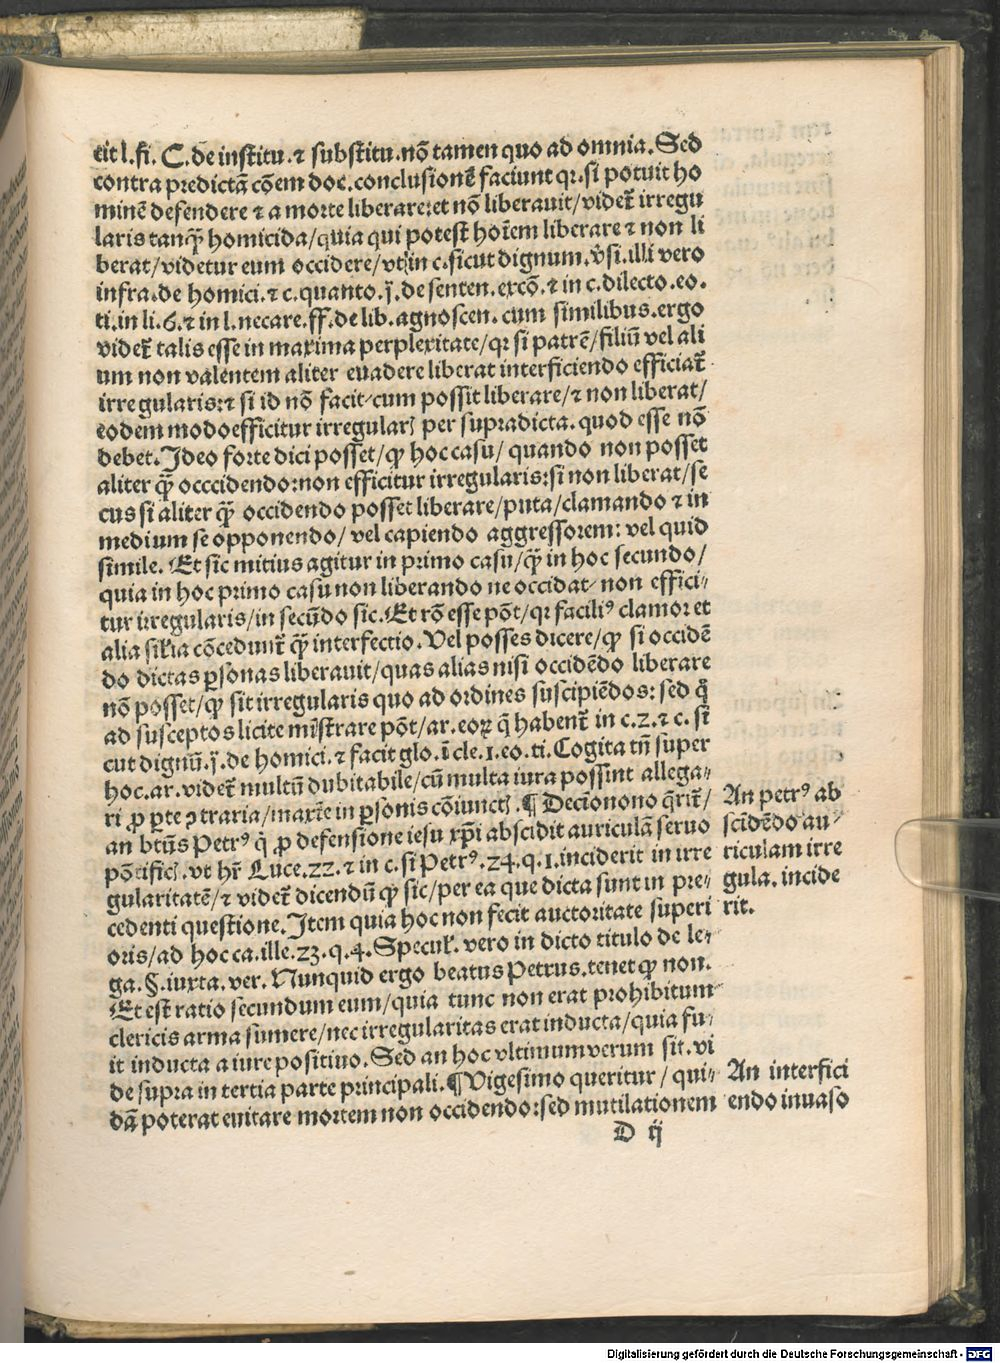 cit l.fi. C.de institu.⁊ substitu.nō tamen quo ad omnia. Sed
contra predictā cōem doc.conclusionē faciunt qꝛ.si potuit ho
minē defendere ⁊ a morte liberare:et nō liberauit/videt̄ irregu
laris tanq̄ꝫ homicida/quia qui potest hoīem liberare ⁊ non li
berat/videtur eum occidere/vt in c.sicut dignum.ꝟsi.illi vero
infra.de homici.⁊ c.quanto.j̈.de senten.excō.⁊ in c.dilecto.eo.
ti.in li.6.⁊ in l.necare.ff.de lib.agnoscen.cum similibus.ergo
videt̄ talis esse in maxima perplexitate/qꝛ si patrē/filiū vel ali
um non valentem aliter euadere liberat interficiendo efficiat̄
irregularis:⁊ si id nō facit/cum possit liberare/⁊ non liberat/
eodem modo efficitur irregularꝭ per supradicta.quod esse nō
debet.Ideo forte dici posset/ꝙ hoc casu/quando non posset
aliter q̄ꝫ occcidendo:non efficitur irregularis:si non liberat/se
cus si aliter q̄ꝫ occidendo posset liberare/puta/clamando ⁊ in
medium se opponendo/vel capiendo aggressorem: vel quid
simile. Et sic mitius agitur in primo casu/q̄ꝫ in hoc secundo/
quia in hoc primo casu non liberando ne occidat/non effici-
tur irregularis/in secūdo sic.Et rō esse pōt/qꝛ faciliꝰ clamor et
alia sīlia cōcedunt̄ q̄ꝫ interfectio.Vel posses dicere/ꝙ si occidē
do dictas ꝑsonas liberauit/quas alias nisi occidēdo liberare
nō posset/ꝙ sit irregularis quo ad ordines suscipiēdos: sed q̄
ad susceptos licite mīstrare pōt/ar.eoꝝ q̄ habent̄ in c.2.⁊ c.si
cut dignū.j̈.de homici.⁊ facit glo.ī cle.1.eo.ti.Cogita tn̄ super
hoc.ar.videt̄ multū dubitabile/cū multa iura possint allega-
ri ꝓ ꝑte ꝯtraria/maxīe in ꝑsonis cōiunctꝭ.¶Decīonono q̄rit̄/
an btūs Petrꝰ q̄ ꝓ defensione iesu xp̄i abscidit auriculā seruo
pōtificꝭ.vt hr̄ Luce.22.⁊ in c.si Petrꝰ.24.q.1.inciderit in irre
gularitatē/⁊ videt̄ dicendū ꝙ sic/per ea que dicta sunt in pre-
cedenti questione.Item quia hoc non fecit auctoritate superi
oris/ad hoc ca.ille.23.q.4.Speculꝭ. vero in dicto titulo de le-
ga.§.iuxta.ver.Nunquid ergo beatus Petrus.tenet ꝙ non.
Et est ratio secundum eum/quia tunc non erat prohibitum
clericis arma sumere/nec irregularitas erat inducta/quia fu-
it inducta a iure positiuo.Sed an hoc vltimum verum sit.vi
de supra in tertia parte principali.¶Vigesimo queritur/qui-
dā poterat euitare mortem non occidendo:sed mutilationem
D ij
An petrꝰ ab
scīdēdo au-
riculam irre
gula.incide
rit.
An interfici
endo inuaso
Digitalisierung gefördert durch die Deutsche Forschungsgemeinschaft - DFG